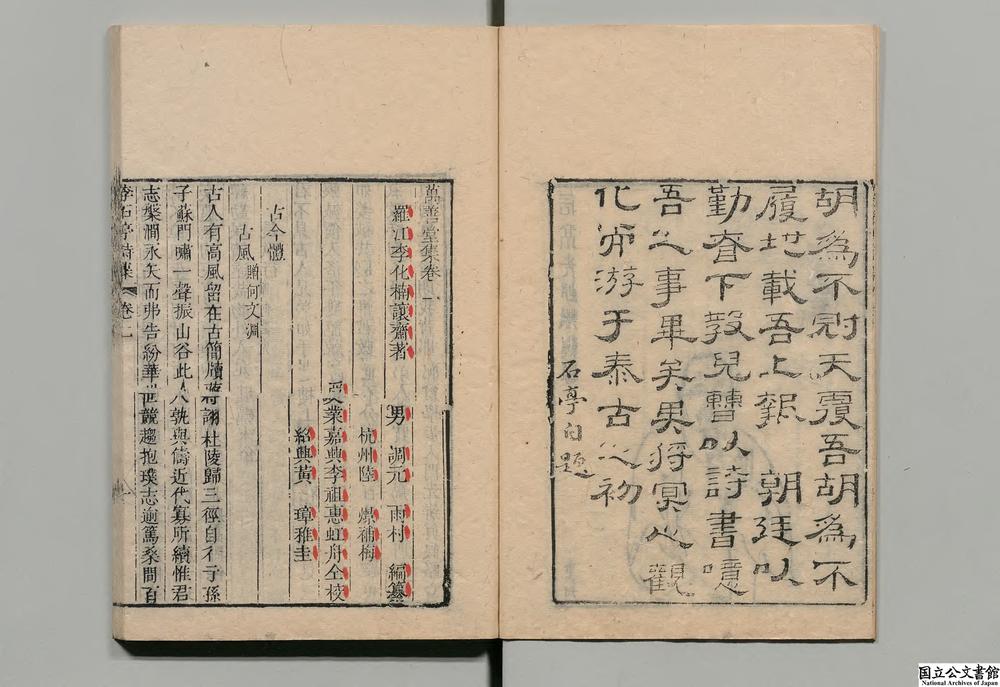 胡爲不冠天覆吾胡爲不
履地載吾上報 朝廷以
勤奮下教兒曹以詩書噫
吾之事畢矣將冥心觀
化而游于泰古之初
石亭自題
萬善堂集卷一
羅江李化楠讓齋著
男 調元 雨村 編纂
杭州陸 爔補梅
受業嘉興李祖惠虹舟仝校
紹興黃 璋稚圭
古今體
古風贈何文淵
古人有高風留在古簡牘蔣詡杜陵歸三徑自彳亍孫
子蘇門嘯一聲振山谷此人孰與儔近代寡所續惟君
志槃澗永矢而弗告紛華世競趨抱璞志逾篤桑間百
李石亭詩集 卷一 一
国立公文書館
National Archives of Japan